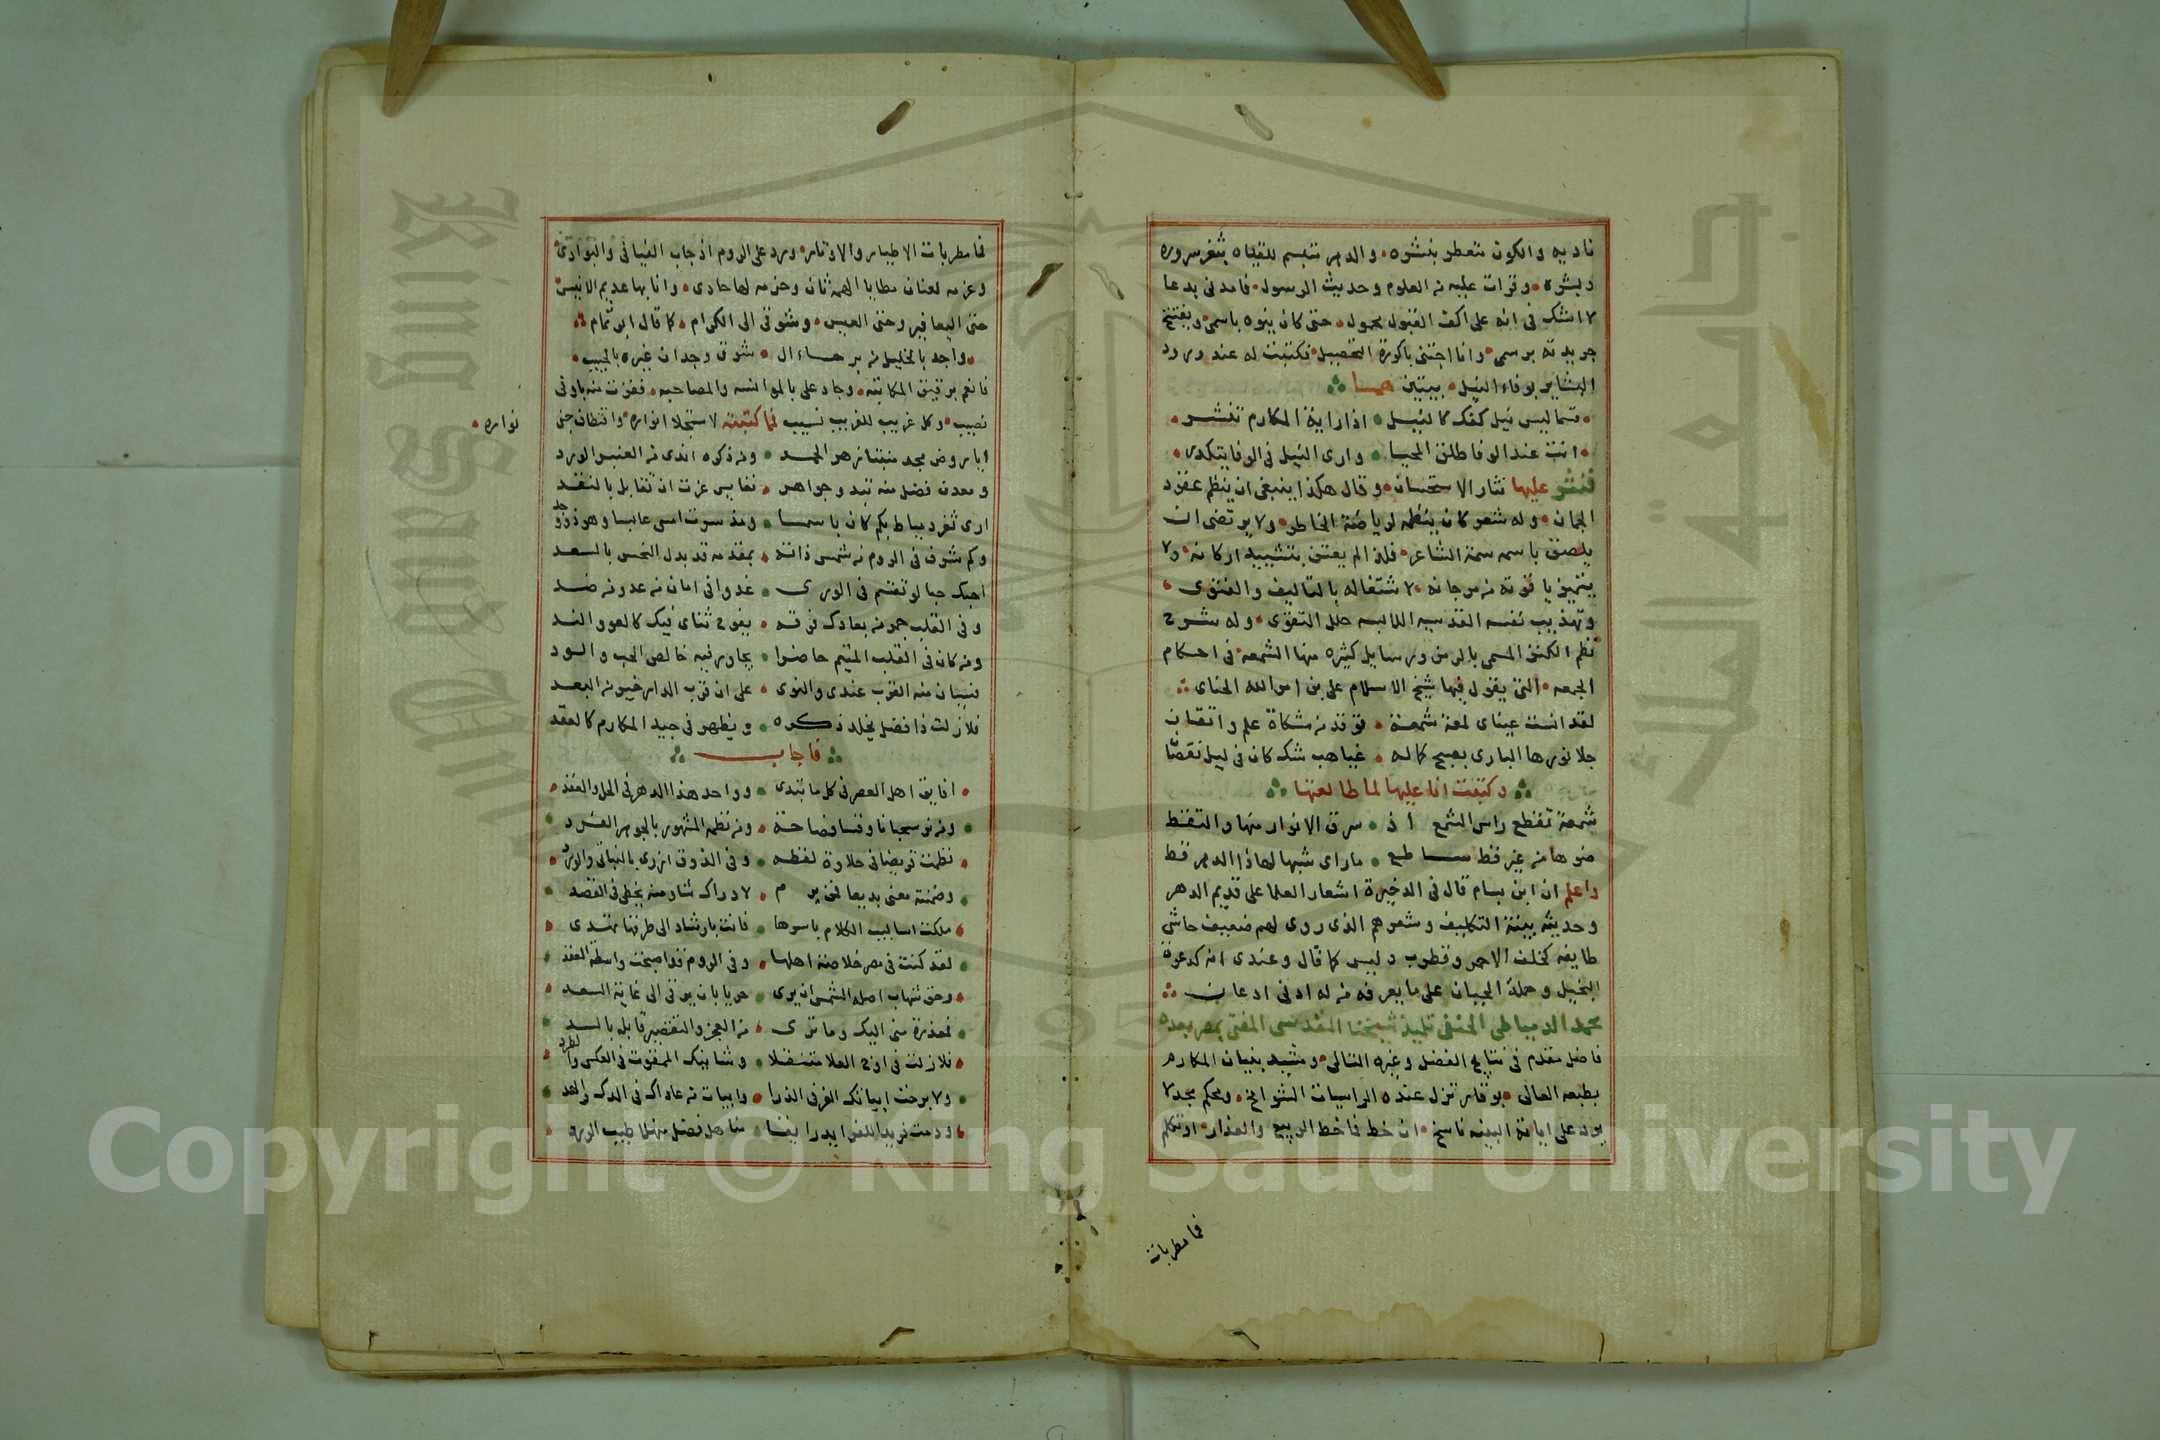 ناديه والكون متعطر بنشوه والدهر متبسم للقياه بثغر سروره
وبشره وقرات عليه من العلوم وحديث الرسول فامدني بدعا
لا اشك في انه على اكف القبول محمول حتى كان ينوه باسمي ويفتتح
جريدته برسمي وانا اجتني باكورة التحصيل فكتبت له عند ورود
البشاير بوفاء النيل ببيتين هما
قسما ليس نيل كفك كالنيل اذا راية المكارم تنشر
انت عند الوفا طلق المحيا وارى النيل في الوفا يتكدر
فنثر عليها نثار الاستحسان وقال هكذا ينبغي ان ينظم عقود
الجمان وله شعر كان ينظمه لرياضة الخاطر ولا يرتضى ان
يلصق باسمه سمة الشاعر فلذا لم يعتن بتشييد اركانه ولا
يتميز ياقوته من مرجانه لاشتغاله بالتاليف والفتوى
وتهذيب نفسه القدسيه اللابسه حلل التقوى وله شرح
نظم الكنز المسمى بالرمز ورسايل كثيره منها الشمعه في احكام
الجمعه التي يقول فيها شيخ الاسلام علي بن امر الله الحناي
لقد انست عيناي لمعة شمعة توقد من مشكاة علم واتقان
جلا نورها الباري بصبح كماله غياهب شك كان في ليل نقصان
وكتبت انا عليها لما طالعتها
شمعة تقطع راس الشمع اذ سرق الانوار منها والتقط
ضوها من غير قط ساطع ما راى شبها لها ذا الدهر قط
واعلم ان ابن بسام قال في الذخيرة اشعار العلما على قديم الدهر
وحديثه بينة التكليف وشعرهم الذي روى لهم ضعيف حاشى
طايفه كخلف الاحمر وقطرب وليس كما قال وعندي انه كدعوة
البخيل وحملة الجبان على ما يعرفه من له ادنى ادعان
محمد الدمياطي الحنفي تلميذ شيخنا المقدسي المفتى بمصر بعده
فاضل مقدم في نتايج الفضل وغيره التالي ومشيد بنيان المكارم
بطبعه العالي بوقار تزل عنده الراسيات الشوامخ ومحكم مجد لا
يرد على اياته البينه ناسخ ان خط فاخط الربيع والعذار او تكلم
فما مطربات
فما مطربات الاطيار والاوتار ورد على الروم اذ جاب الفيافي والبوادي
وعزمه لعنان مطايا الهمه ثان وحزمه لها حادي وانا بها عديم الانيس
حتى اليعافير وحتى العيس وشوقي الى الكرام كما قال ابو تمام
واجد بالخليل من برحاء ال شوق وجدان غيره بالحبيب
فانعم برقيق المكاتبه وجاد علي بالموانسه والمصاحبه ففزت منه باوفى
نصيب وكل غريب للغريب نسيب فما كتبته لاستجلا انواره واقتطاف جنى
نواره
ايا روض مجد منبتا زهر الحمد ومن ذكره اندى من العنبر الورد
ومعدن فضل منه تبدو جواهر نفايس عزت ان تقابل بالنقد
ارى ثغر دمياط بكم كان باسما ومذ سرت امسى عابسا وهو ذو وجد
وكم شرف في الروم من شمس ذاته بمقدمه قد بدل النحس بالسعد
احبك حبا لو تقسم في الورى غدوا في امان من عدو ومن ضد
وفي القلب جمر من بعادك فوقه يفوح ثناي فيك كالعود والند
ومن كان في القلب المتيم حاضرا يجاور فيه خالص الحب والود
فسيان منه القرب عندي والنوى على ان قرب الدار خير من البعد
فلا زلت ذا فضل يخلد ذكره وينظم في جيد المكارم كالعقد
فاجاب
افايق اهل العصر في كل ما تبدي وواحد هذا الدهر في الحل والعقد
ومن نوه سحبانا وقسا فصاحة ومن نظمه المشهور بالجوهر الفرد
نظمت قريضا في حلاوة لفظه وفي الذوق ازرى بالنباتي والورد
وضمنته معنى بديعا لمن يرم لادراك شاو منه يخطى في القصد
ملكت اساليب الكلام باسرها فانت بارشاد الى طرقها تهدي
لقد كنت في مصر خلاصة اهلها وفي الروم قد اصبحت واسطة العقد
وحق شهاب اصله الشمس ان يرى حريا بان يرقى الى غاية السعد
فمعذرة مني اليك وما ترى من العجز والتقصير قابله بالسد
فلا زلت في اوج العلا متنقلا وشانيك الممقوت في العكس والطرد
ولا برحت ابياتك الغر في الذرا وابيات من عاداك في الدك والهد
ودمت فريدا للفرايد رافعا